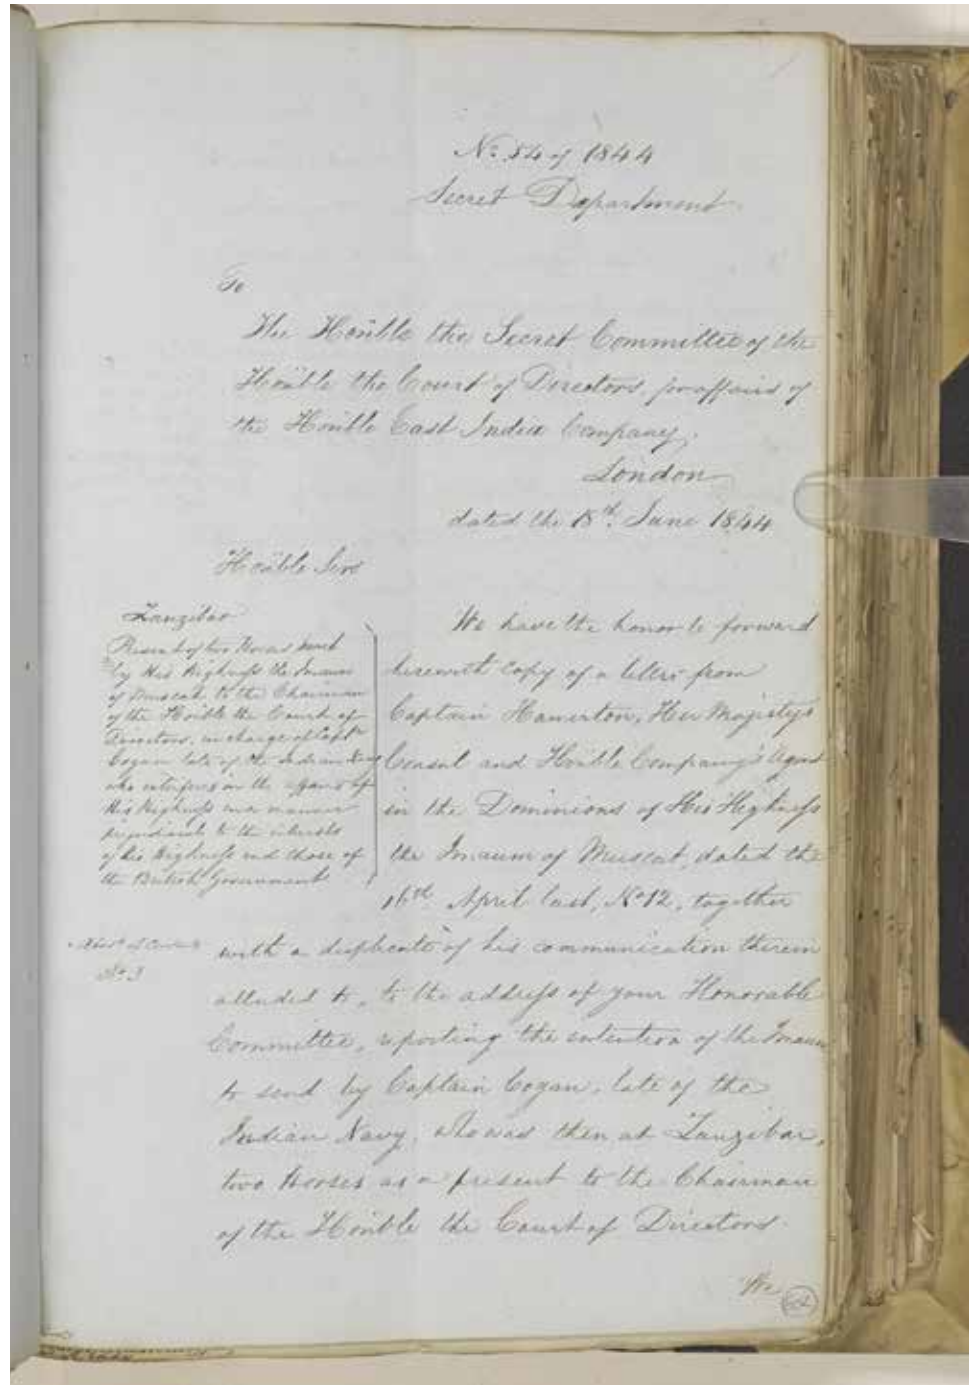 No. 54 of 1844
Secret Department
To
The Honble the Secret Committee of the
Honble the Court of Directors, for affairs of
the Honble East India Company,
London
dated the 18th. June 1844
Honble Sirs
Zanzibar
Present of two Horses sent
by His Highness the Imaum
of Muscat to the Chairman
of the Honble the Court of
Directors, in charge of Captn.
Cogan late of the Indian Navy
who interferes in the affairs of
His Highness in a manner
prejudicial to the interests
of his Highness and those of
the British Government
No. 3
We have the honor to forward
herewith copy of a letter from
Captain Hamerton, Her Majesty's
Consul and Honble Company's Agent
in the Dominions of His Highness
the Imaum of Muscat, dated the
16th April last, No. 12, together
with a duplicate of his communication therein
alluded to, to the address of your Honorable
Committee, reporting the intention of the Imaum
to send by Captain Cogan, late of the
Indian Navy, who was then at Zanzibar,
two Horses as a present to the Chairman
of the Honble the Court of Directors.
We